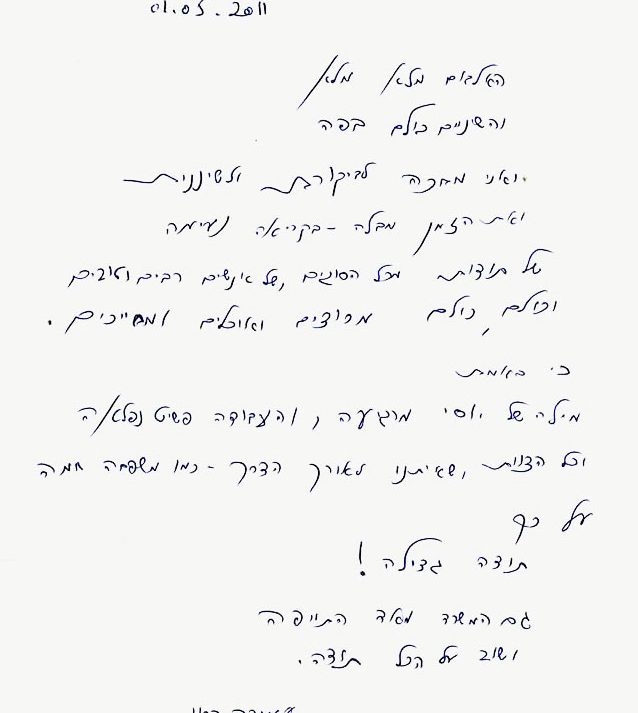 01.05.2011
האלבום מלא מלא
והשיניים כולם בפה
ואני מחכה לביקורת ולשיננית
ואת הזמן מבלה - בקריאה נעימה
של תודות מכל הסוגים, של אנשים רבים וטובים
וכולם, כולם מרוצים ואוכלים ומחייכים.
כי באמת
מילה של יוסי מרגיעה, והעבודה פשוט נפלאה
וכל הצוות, שאיתנו לאורך הדרך - כמו משפחה חמה
על כך
תודה גדולה!
גם המשרד מאד התייפה
ושוב על הכל תודה.